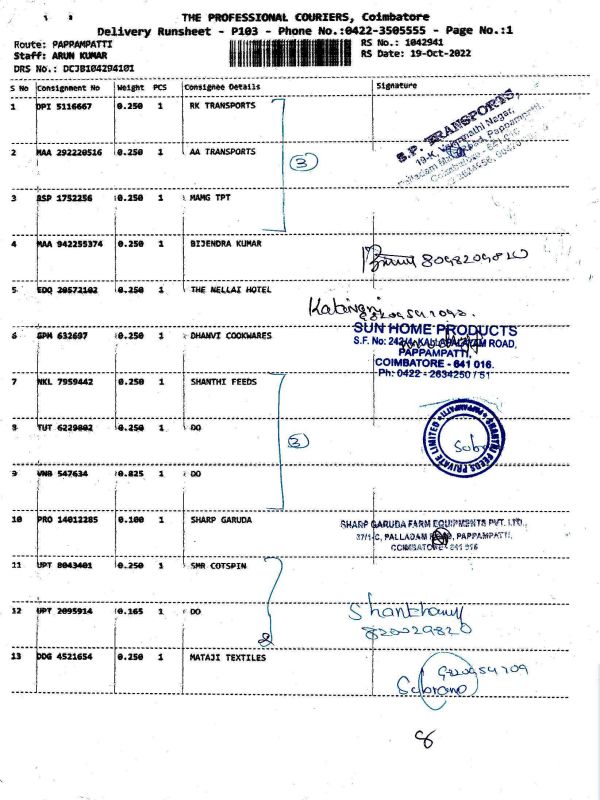 THE PROFESSIONAL COURIERS, Coimbatore
Delivery Runsheet - P103 - Phone No.:0422-3505555 - Page No.:1
Route: PAPPAMPATTI
RS No.: 1042941
Staff: ARUN KUMAR
RS Date: 19-Oct-2022
DRS No.: DCJB104294101
S No Consignment No Weight PCS Consignee Details Signature
1 DPI 5116667 0.250 1 RK TRANSPORTS
S.P. TRANSPORTS,
2 MAA 292220516 0.250 1 AA TRANSPORTS
3
3 BSP 1752256 0.250 1 MAMG TPT
4 MAA 942255374 0.250 1 BIJENDRA KUMAR
8098209820
5 EDQ 20572102 0.250 1 THE NELLAI HOTEL
SUN HOME PRODUCTS
6 GPM 632697 0.250 1 DHANVI COOKWARES
S.F. No: 242/4, KALLAPALAYAM ROAD,
PAPPAMPATTI,
COIMBATORE - 641 016.
Ph: 0422 - 2634250 / 51
7 NKL 7959442 0.250 1 SHANTHI FEEDS
8 TUT 6229802 0.250 1 DO
3
SHANTHI FEEDS PRIVATE LIMITED
9 VNB 547634 0.825 1 DO
10 PRO 14012285 0.100 1 SHARP GARUDA
SHARP GARUDA FARM EQUIPMENTS PVT. LTD.,
37/1-C, PALLADAM ROAD, PAPPAMPATTI,
COIMBATORE - 641 016
11 UPT 8043401 0.250 1 SMR COTSPIN
12 UPT 2095914 0.165 1 DO
2
820029820
13 DDG 4521654 0.250 1 MATAJI TEXTILES
8